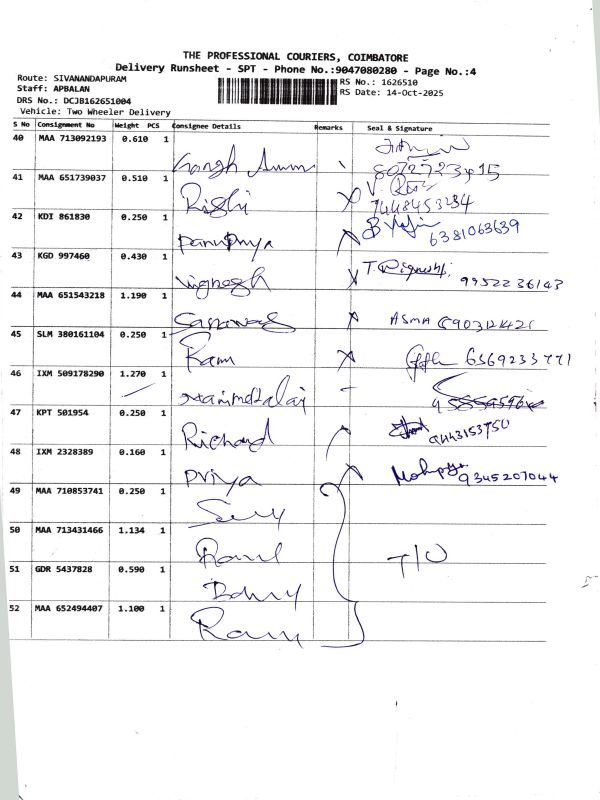 THE PROFESSIONAL COURIERS, COIMBATORE
Delivery Runsheet - SPT - Phone No.:9047080280 - Page No.:4
Route: SIVANANDAPURAM
RS No.: 1626510
Staff: APBALAN
RS Date: 14-Oct-2025
DRS No.: DCJB162651004
Vehicle: Two Wheeler Delivery
S No Consignment No Weight PCS Consignee Details Remarks Seal & Signature
40 MAA 713092193 0.610 1
41 MAA 651739037 0.510 1 Rishi
42 KDI 861830 0.250 1 6381063639
43 KGD 997460 0.430 1 Vignesh 9952236143
44 MAA 651543218 1.190 1 ASMA
45 SLM 380161104 0.250 1 Ram 6369233771
46 IXM 509178290 1.270 1
47 KPT 501954 0.250 1 Richard 9443153750
48 IXM 2328389 0.160 1 Priya 9345207044
49 MAA 710853741 0.250 1
50 MAA 713431466 1.134 1 T/O
51 GDR 5437828 0.590 1
52 MAA 652494407 1.100 1 Ram